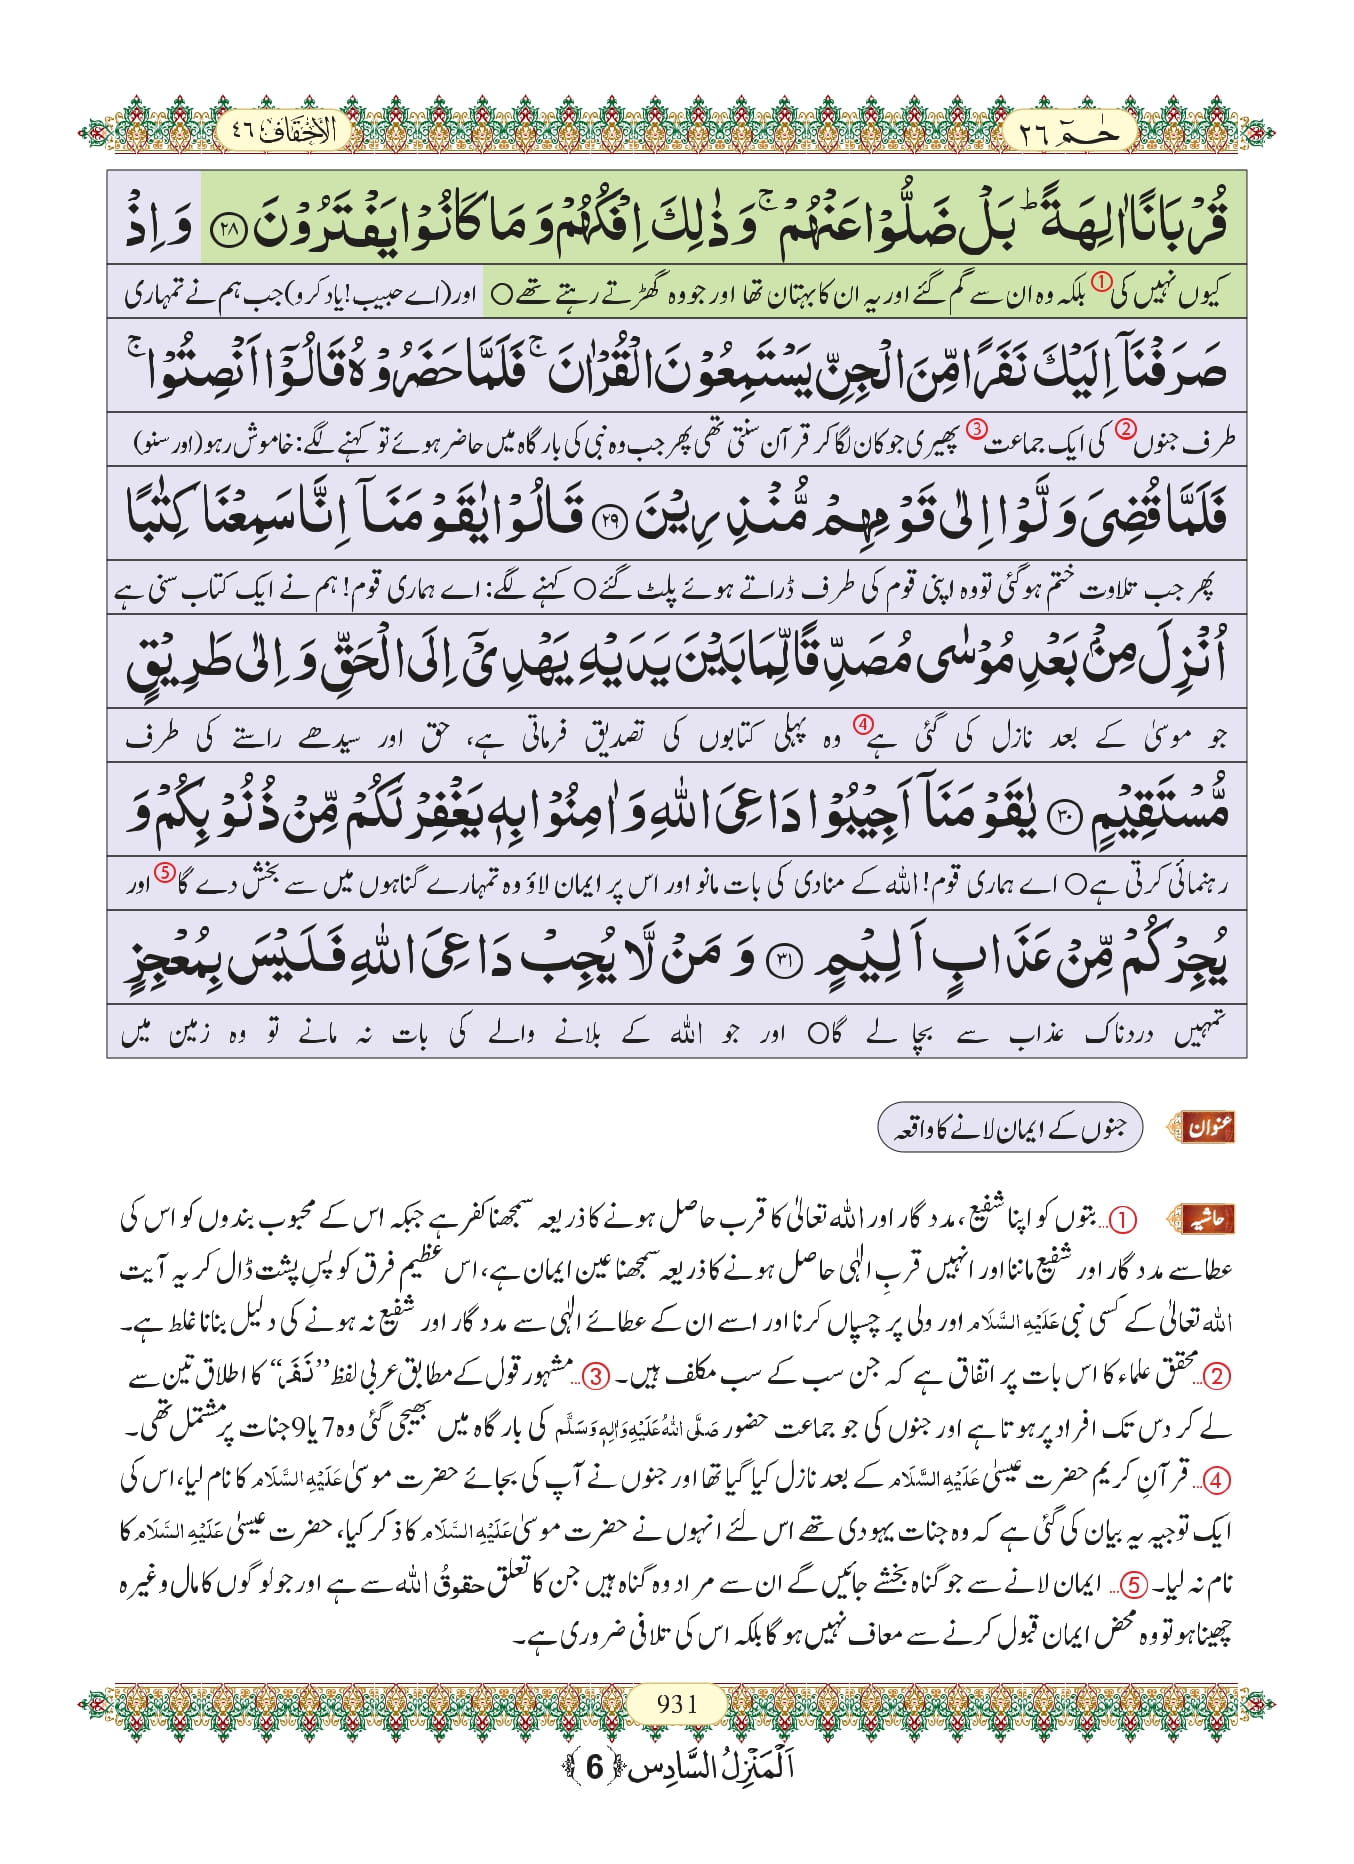 حٰمٓ ٢٦
الاحقاف ٤٦
قُرْبَانًا اٰلِهَةًؕ بَلْ ضَلُّوْا عَنْهُمْۚ وَ ذٰلِكَ اِفْكُهُمْ وَ مَا كَانُوْا یَفْتَرُوْنَ ﴿۲۸﴾ وَ اِذْ
کیوں نہیں کی① بلکہ وہ ان سے گم گئے اور یہ ان کا بہتان تھا اور جو وہ گھڑتے رہتے تھے○ اور (اے حبیب! یاد کرو) جب ہم نے تمہاری
صَرَفْنَاۤ اِلَیْكَ نَفَرًا مِّنَ الْجِنِّ یَسْتَمِعُوْنَ الْقُرْاٰنَۚ فَلَمَّا حَضَرُوْهُ قَالُوْۤا اَنْصِتُوْاۚ
طرف جنوں② کی ایک جماعت③ پھیری جو کان لگا کر قرآن سنتی تھی پھر جب وہ نبی کی بارگاہ میں حاضر ہوئے تو کہنے لگے: خاموش رہو (اور سنو)
فَلَمَّا قُضِیَ وَ لَّوْا اِلٰى قَوْمِهِمْ مُّنْذِرِیْنَ ﴿۲۹﴾ قَالُوْا یٰقَوْمَنَاۤ اِنَّا سَمِعْنَا كِتٰبًا
پھر جب تلاوت ختم ہو گئی تو وہ اپنی قوم کی طرف ڈراتے ہوئے پلٹ گئے○ کہنے لگے: اے ہماری قوم! ہم نے ایک کتاب سنی ہے
اُنْزِلَ مِنْۢ بَعْدِ مُوْسٰى مُصَدِّقًا لِّمَا بَیْنَ یَدَیْهِ یَهْدِیْۤ اِلَى الْحَقِّ وَ اِلٰى طَرِیْقٍ
جو موسیٰ کے بعد نازل کی گئی ہے④ وہ پہلی کتابوں کی تصدیق فرماتی ہے، حق اور سیدھے راستے کی طرف
مُّسْتَقِیْمٍ ﴿۳۰﴾ یٰقَوْمَنَاۤ اَجِیْبُوْا دَاعِیَ اللّٰهِ وَ اٰمِنُوْا بِهٖ یَغْفِرْ لَكُمْ مِّنْ ذُنُوْبِكُمْ وَ
رہنمائی کرتی ہے○ اے ہماری قوم! اللہ کے منادی کی بات مانو اور اس پر ایمان لاؤ وہ تمہارے گناہوں میں سے بخش دے گا⑤ اور
یُجِرْكُمْ مِّنْ عَذَابٍ اَلِیْمٍ ﴿۳۱﴾ وَ مَنْ لَّا یُجِبْ دَاعِیَ اللّٰهِ فَلَیْسَ بِمُعْجِزٍ
تمہیں دردناک عذاب سے بچا لے گا○ اور جو اللہ کے بلانے والے کی بات نہ مانے تو وہ زمین میں
عنوان جنوں کے ایمان لانے کا واقعہ
حاشیہ ①... بتوں کو اپنا شفیع، مددگار اور اللہ تعالیٰ کا قرب حاصل ہونے کا ذریعہ سمجھنا کفر ہے جبکہ اس کے محبوب بندوں کو اس کی
عطا سے مددگار اور شفیع ماننا اور انہیں قربِ الٰہی حاصل ہونے کا ذریعہ سمجھنا عین ایمان ہے، اس عظیم فرق کو پسِ پشت ڈال کر یہ آیت
اللہ تعالیٰ کے کسی نبی عَلَیْهِ السَّلَام اور ولی پر چسپاں کرنا اور اسے ان کے عطائے الٰہی سے مددگار اور شفیع نہ ہونے کی دلیل بنانا غلط ہے۔
②... محقق علماء کا اس بات پر اتفاق ہے کہ جن سب کے سب مکلف ہیں۔ ③... مشہور قول کے مطابق عربی لفظ ’’نَفَر‘‘ کا اطلاق تین سے
لے کر دس تک افراد پر ہوتا ہے اور جنوں کی جو جماعت حضور صَلَّی اللّٰهُ عَلَیْهِ وَاٰلِهٖ وَسَلَّم کی بارگاہ میں بھیجی گئی وہ 7 یا 9 جنات پر مشتمل تھی۔
④... قرآنِ کریم حضرت عیسیٰ عَلَیْهِ السَّلَام کے بعد نازل کیا گیا تھا اور جنوں نے آپ کی بجائے حضرت موسیٰ عَلَیْهِ السَّلَام کا نام لیا، اس کی
ایک توجیہ یہ بیان کی گئی ہے کہ وہ جنات یہودی تھے اس لئے انہوں نے حضرت موسیٰ عَلَیْهِ السَّلَام کا ذکر کیا، حضرت عیسیٰ عَلَیْهِ السَّلَام کا
نام نہ لیا۔ ⑤... ایمان لانے سے جو گناہ بخشے جائیں گے ان سے مراد وہ گناہ ہیں جن کا تعلق حقوقُ اللہ سے ہے اور جو لوگوں کا مال وغیرہ
چھینا ہو تو وہ محض ایمان قبول کرنے سے معاف نہیں ہو گا بلکہ اس کی تلافی ضروری ہے۔
931
اَلْمَنْزِلُ السَّادِس ﴿6﴾